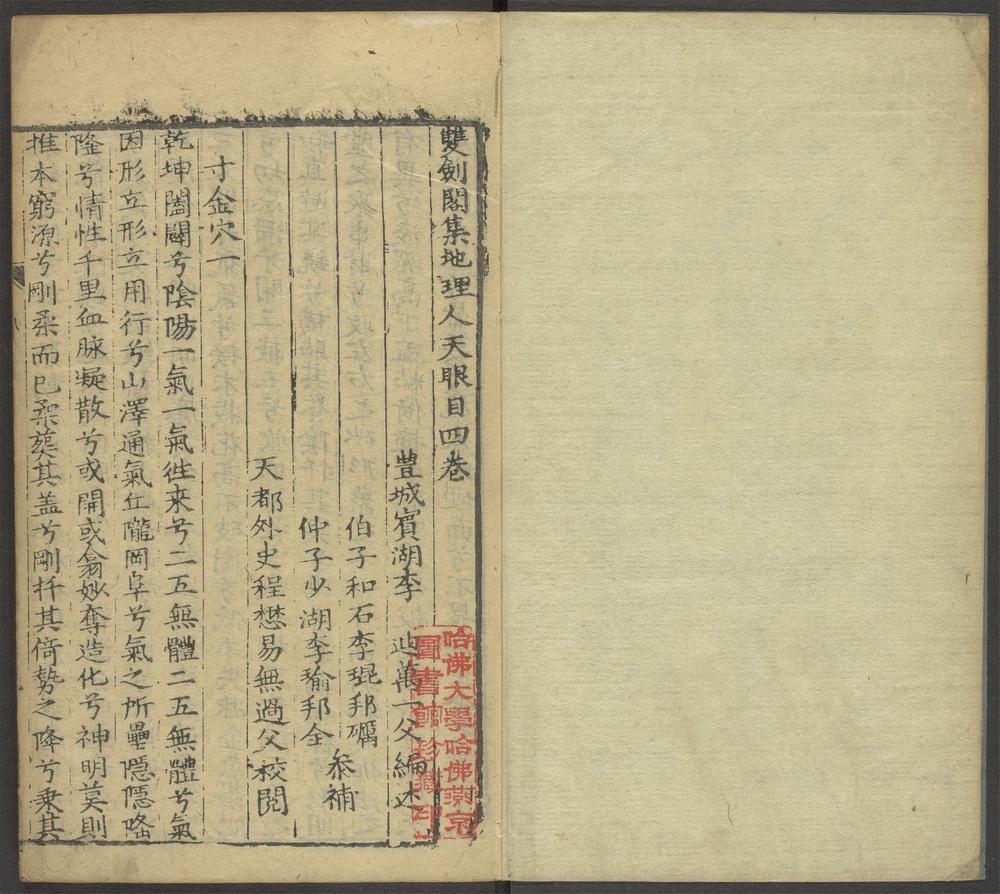 雙劍閣集地理人天眼目四卷
豐城賓湖李 迪萬一父編述
伯子和石李琨邦礪
仲子少湖李瑜邦全
叅補
天都外史程懋易無過父校閱
寸金穴一
乾坤闔闢兮陰陽一氣一氣徃来兮二五無體二五無體兮氣
因形立形立用行兮山澤通氣丘隴岡阜兮氣之所壘隱隱隆
隆兮情性千里血脉凝散兮或開或翕妙奪造化兮神明莫則
推本窮源兮剛柔而已柔葬其盖兮剛扦其倚勢之降兮乗其
哈佛大學哈佛燕京
圖書館珍藏印